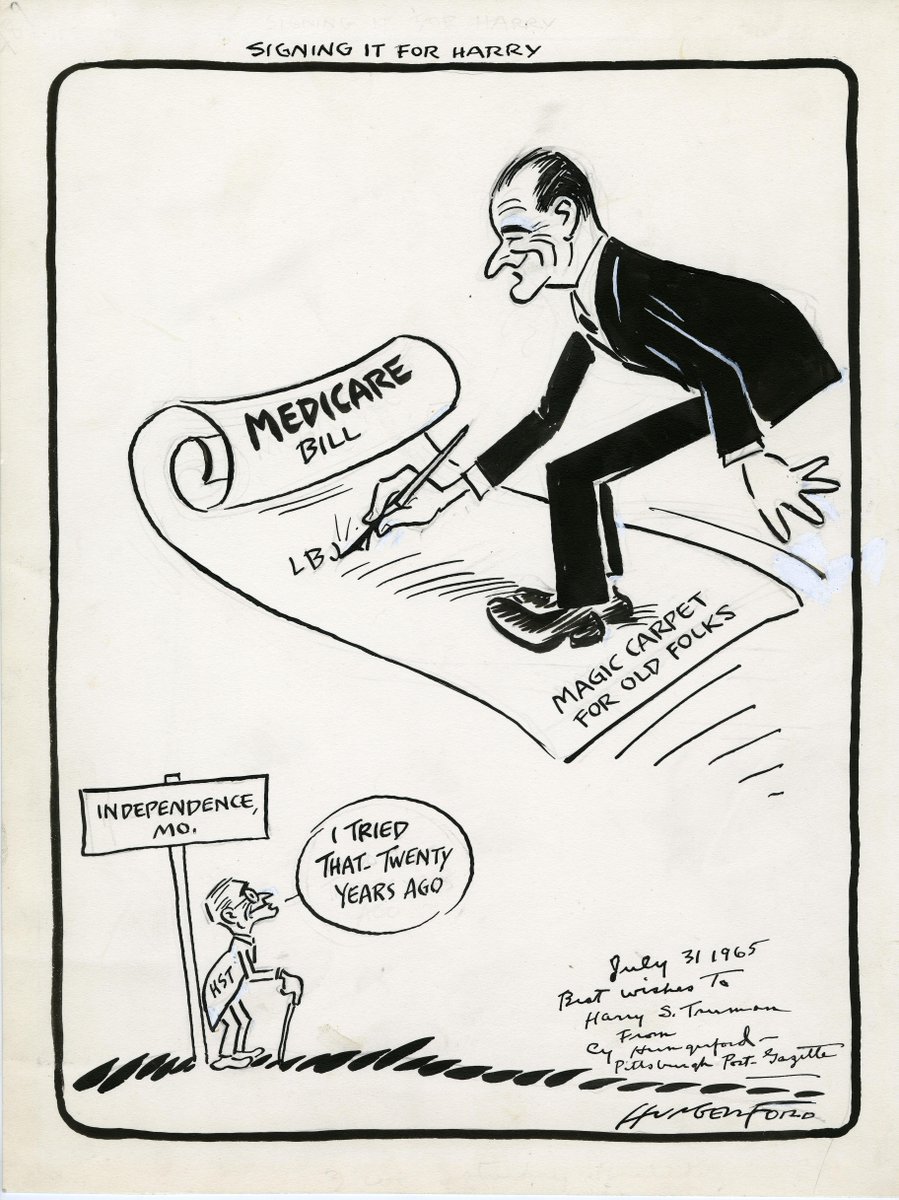 SIGNING IT FOR HARRY
MEDICARE
BILL
LBJ
MAGIC CARPET
FOR OLD FOLKS
INDEPENDENCE,
MO.
I TRIED
THAT- TWENTY
YEARS AGO
HST
July 31 1965
Best wishes To
Harry S. Truman
From
Cy Hungerford-
Pittsburgh Post-Gazette
HUNGERFORD